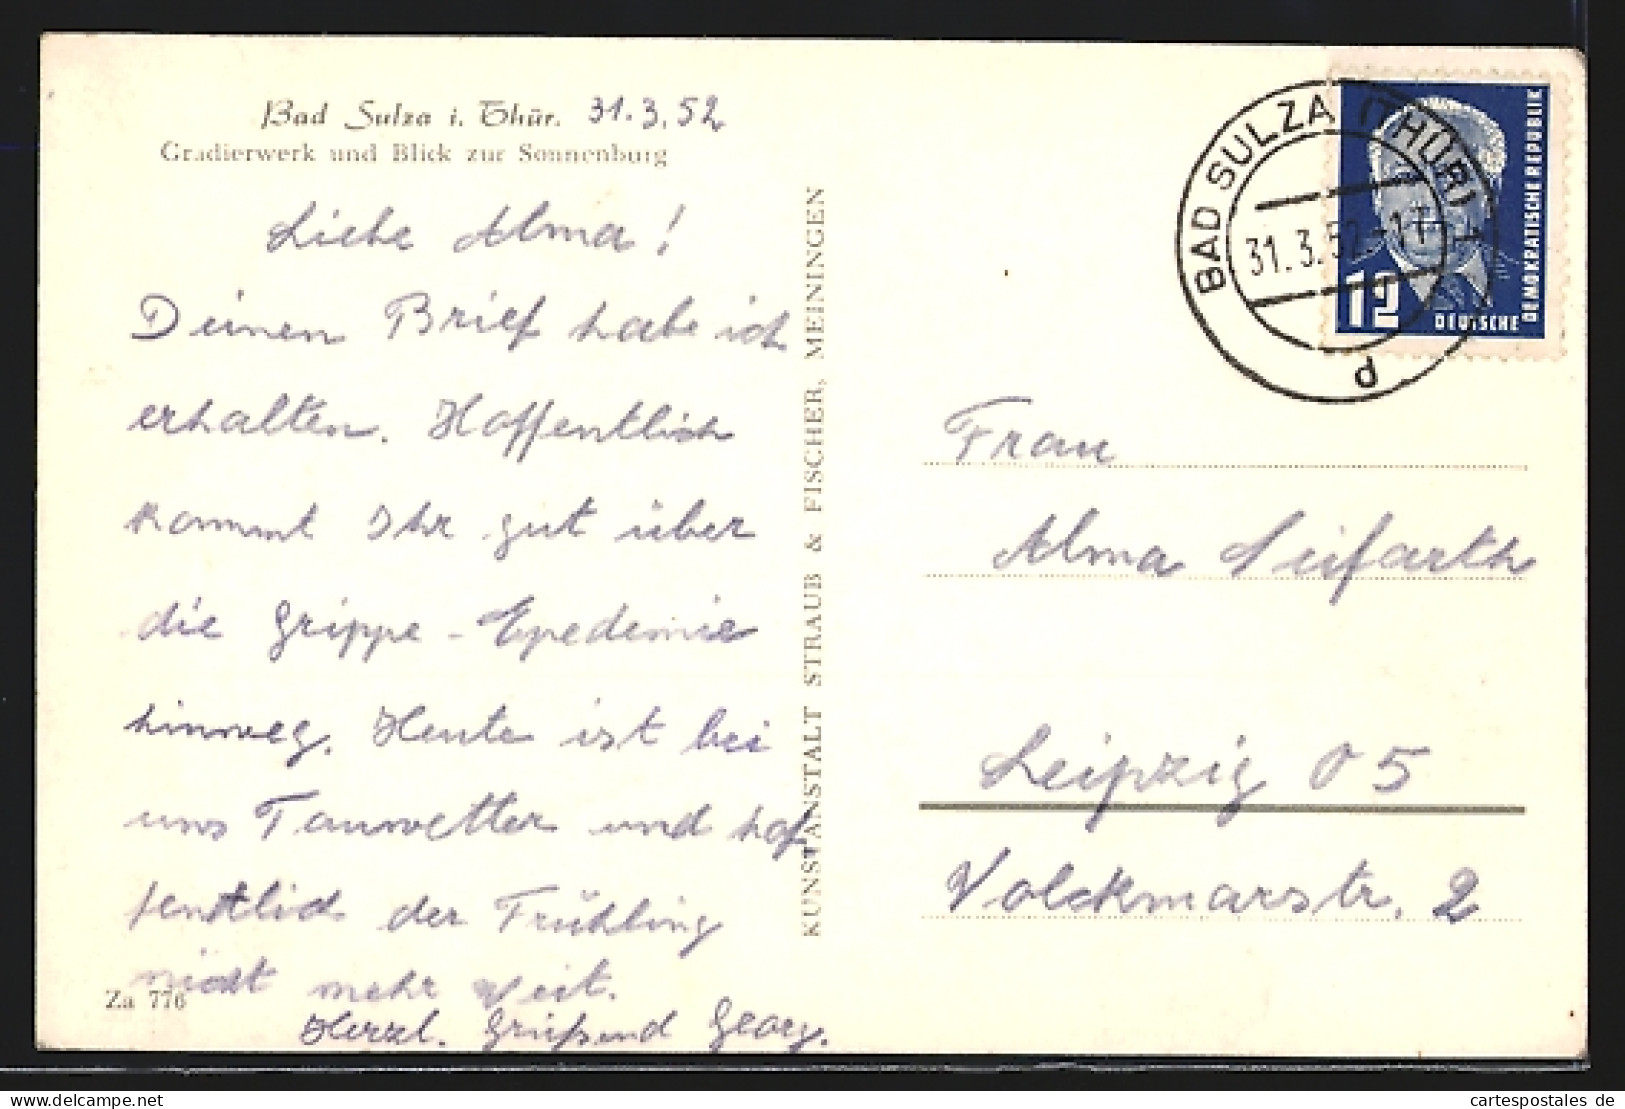 Bad Sulza i. Thür. 31.3.52
Gradierwerk und Blick zur Sonnenburg
Liebe Alma!
Deinen Brief habe ich
erhalten. Hoffentlich
kommt Ihr gut über
die Grippe - Epedemie
hinweg. Heute ist bei
uns Tauwetter und hof
fentlich der Frühling
nicht mehr weit.
Herzl. Grüßend Georg.
Za 776
KUNSTANSTALT STRAUB & FISCHER, MEININGEN
BAD SULZA (THÜR) 1
31.3.52-17
d
12
DEUTSCHE
DEMOKRATISCHE REPUBLIK
Frau
Alma Seifarth
Leipzig O 5
Volckmarstr. 2
www.cartespostales.de
cartespostales de